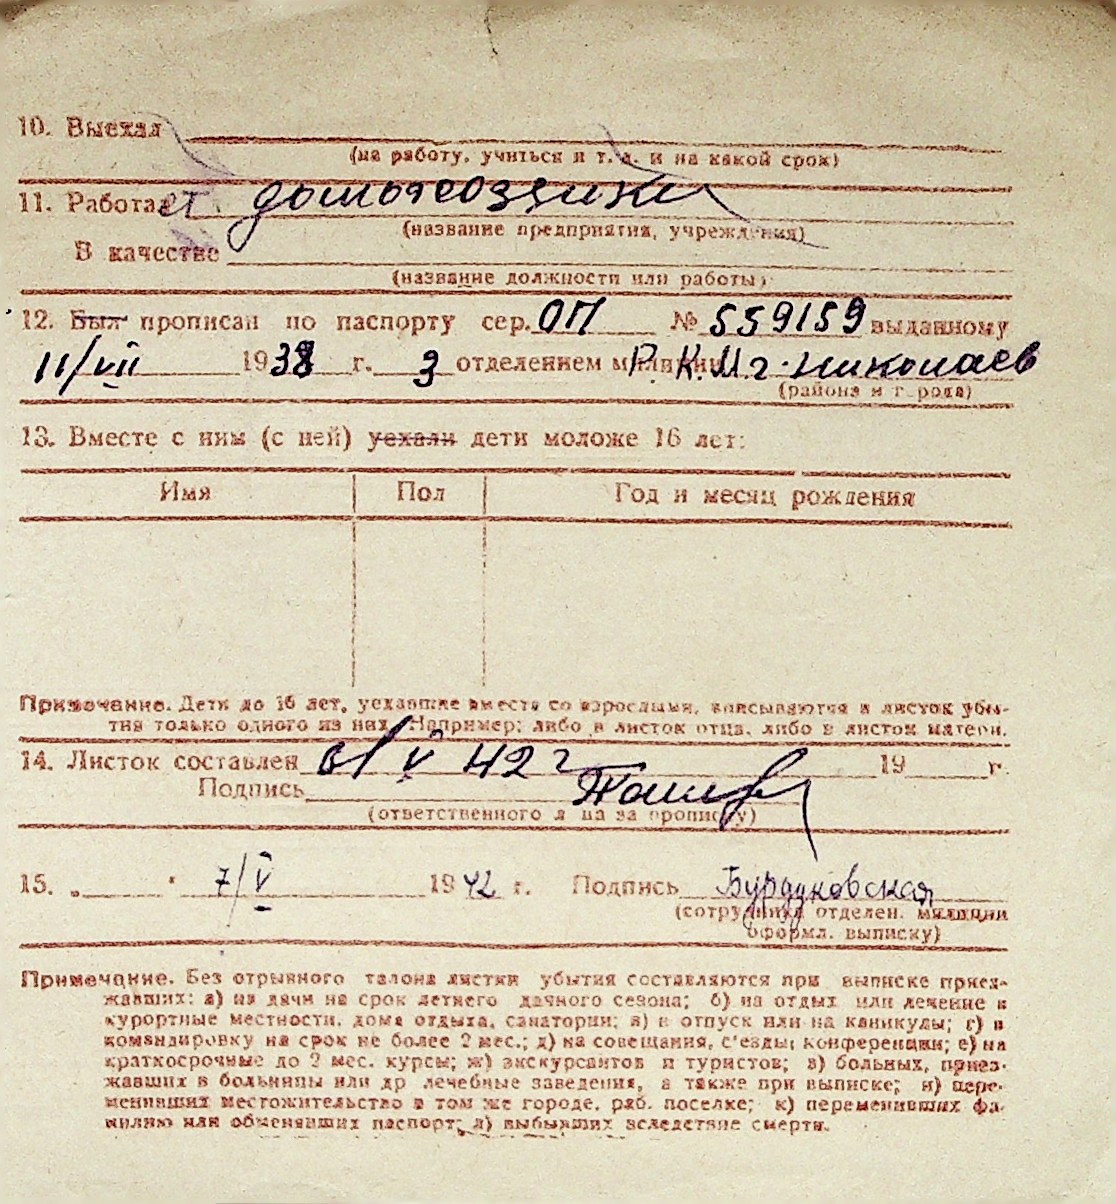 10. Выехал
(на работу, учиться и т. д. и на какой срок)
11. Работает домохозяйки
(название предприятия, учреждения)
В качестве
(название должности или работы)
12. Был прописан по паспорту сер. ОП № 559159 выданному
11/VII 1938 г. 3 отделением милиции Р. К. М г. Николаев
(района и города)
13. Вместе с ним (с ней) уехали дети моложе 16 лет:
Имя Пол Год и месяц рождения
Примечание. Дети до 16 лет, уехавшие вместе со взрослыми, вписываются в листок убы-
тия только одного из них. Например: либо в листок отца, либо в листок матери.
14. Листок составлен 6/V 42 г 19 г.
Подпись
(ответственного лица за прописку)
15. „ " 7/V 1942 г. Подпись Бурдуковская
(сотрудника отделен. милиции
оформл. выписку)
Примечание. Без отрывного талона листки убытия составляются при выписке приез-
жавших: а) на дачи на срок летнего дачного сезона; б) на отдых или лечение в
курортные местности, дома отдыха, санатории; в) в отпуск или на каникулы; г) в
командировку на срок не более 2 мес.; д) на совещания, с'езды, конференции; е) на
краткосрочные до 2 мес. курсы; ж) экскурсантов и туристов; з) больных, приез-
жавших в больницы или др лечебные заведения, а также при выписке; и) пере-
менивших местожительство в том же городе, раб. поселке; к) переменивших фа-
милию или обменявших паспорт; л) выбывших вследствие смерти.